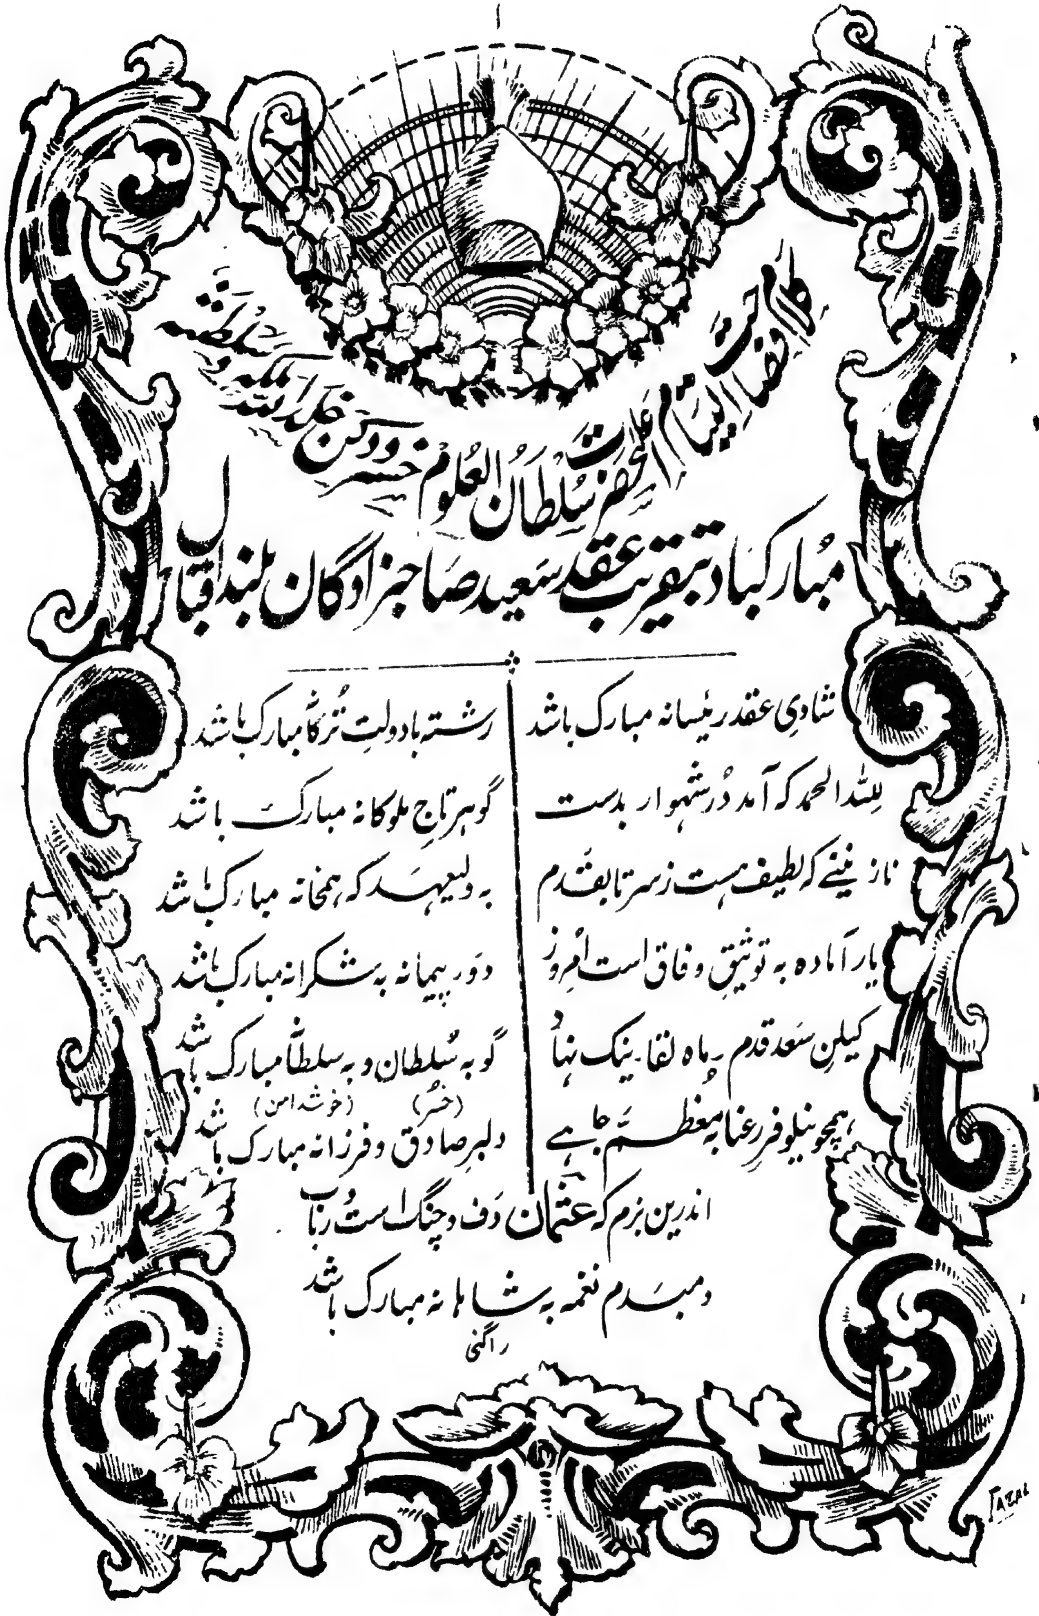 کلام فصاحت التیام اعلیحضرت سلطان العلوم خسرو دکن خلد اللہ ملکہ و سلطنتہ
مبارکباد بتقریب عقد سعید صاحبزادگان بلند اقبال
شادیِ عقد رئیسانہ مبارک باشد
رشتہ بادولتِ ترکانہ مبارک باشد
للہ الحمد کہ آمد دُرِ شہوار بدست
گوہر تاجِ ملوکانہ مبارک باشد
نازنینے کہ لطیف ہست ز سر تا بقدم
بہ ولیعہد کہ ہمخانہ مبارک باشد
یار آمادہ بہ توثیقِ وفاق است امروز
دَور پیمانہ بہ شکرانہ مبارک باشد
کیلنِ سعد قدم ماہ لقا نیک نہاد
گو بہ سُلطان و بہ سلطانہ مبارک باشد
(خسُر) (خوشدامن)
ہمچو نیلوفرِ رعنا بہ معظم جاہے
دلبرِ صادق و فرزانہ مبارک باشد
اندرین بزم کہ عثمان دَف و چنگ است و رُباب
دمبدم نغمہ بہ شاہانہ مبارک باشد
راگنی
FAZAL